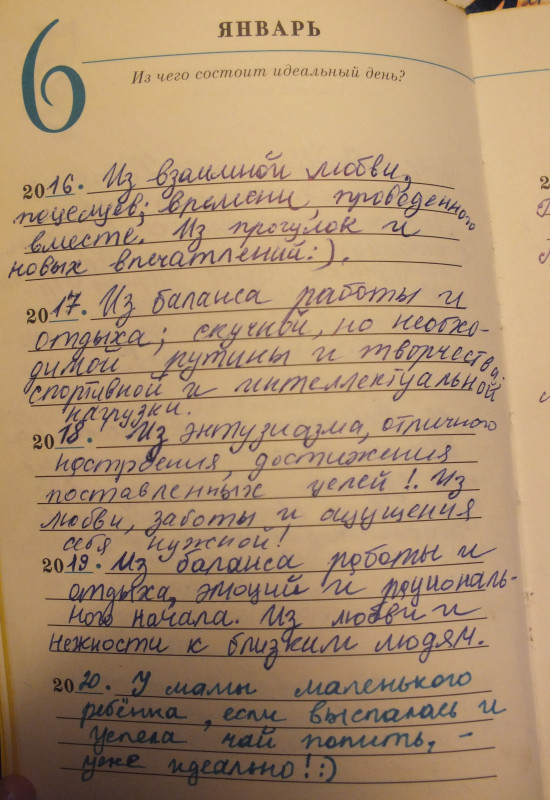 6
ЯНВАРЬ
Из чего состоит идеальный день?
2016. Из взаимной любви,
поцелуев; времени, проведенного
вместе. Из прогулок и
новых впечатлений:).
2017. Из баланса работы и
отдыха; скучной, но необхо-
димой рутины и творчества;
спортивной и интеллектуальной
нагрузки.
2018. Из энтузиазма, отличного
настроения, достижения
поставленных целей!. Из
любви, заботы и ощущения
себя нужной!
2019. Из баланса работы и
отдыха, эмоций и рациональ-
ного начала. Из любви и
нежности к близким людям.
2020. У мамы маленького
ребёнка, если выспалась и
успела чай попить, -
уже идеально!:)